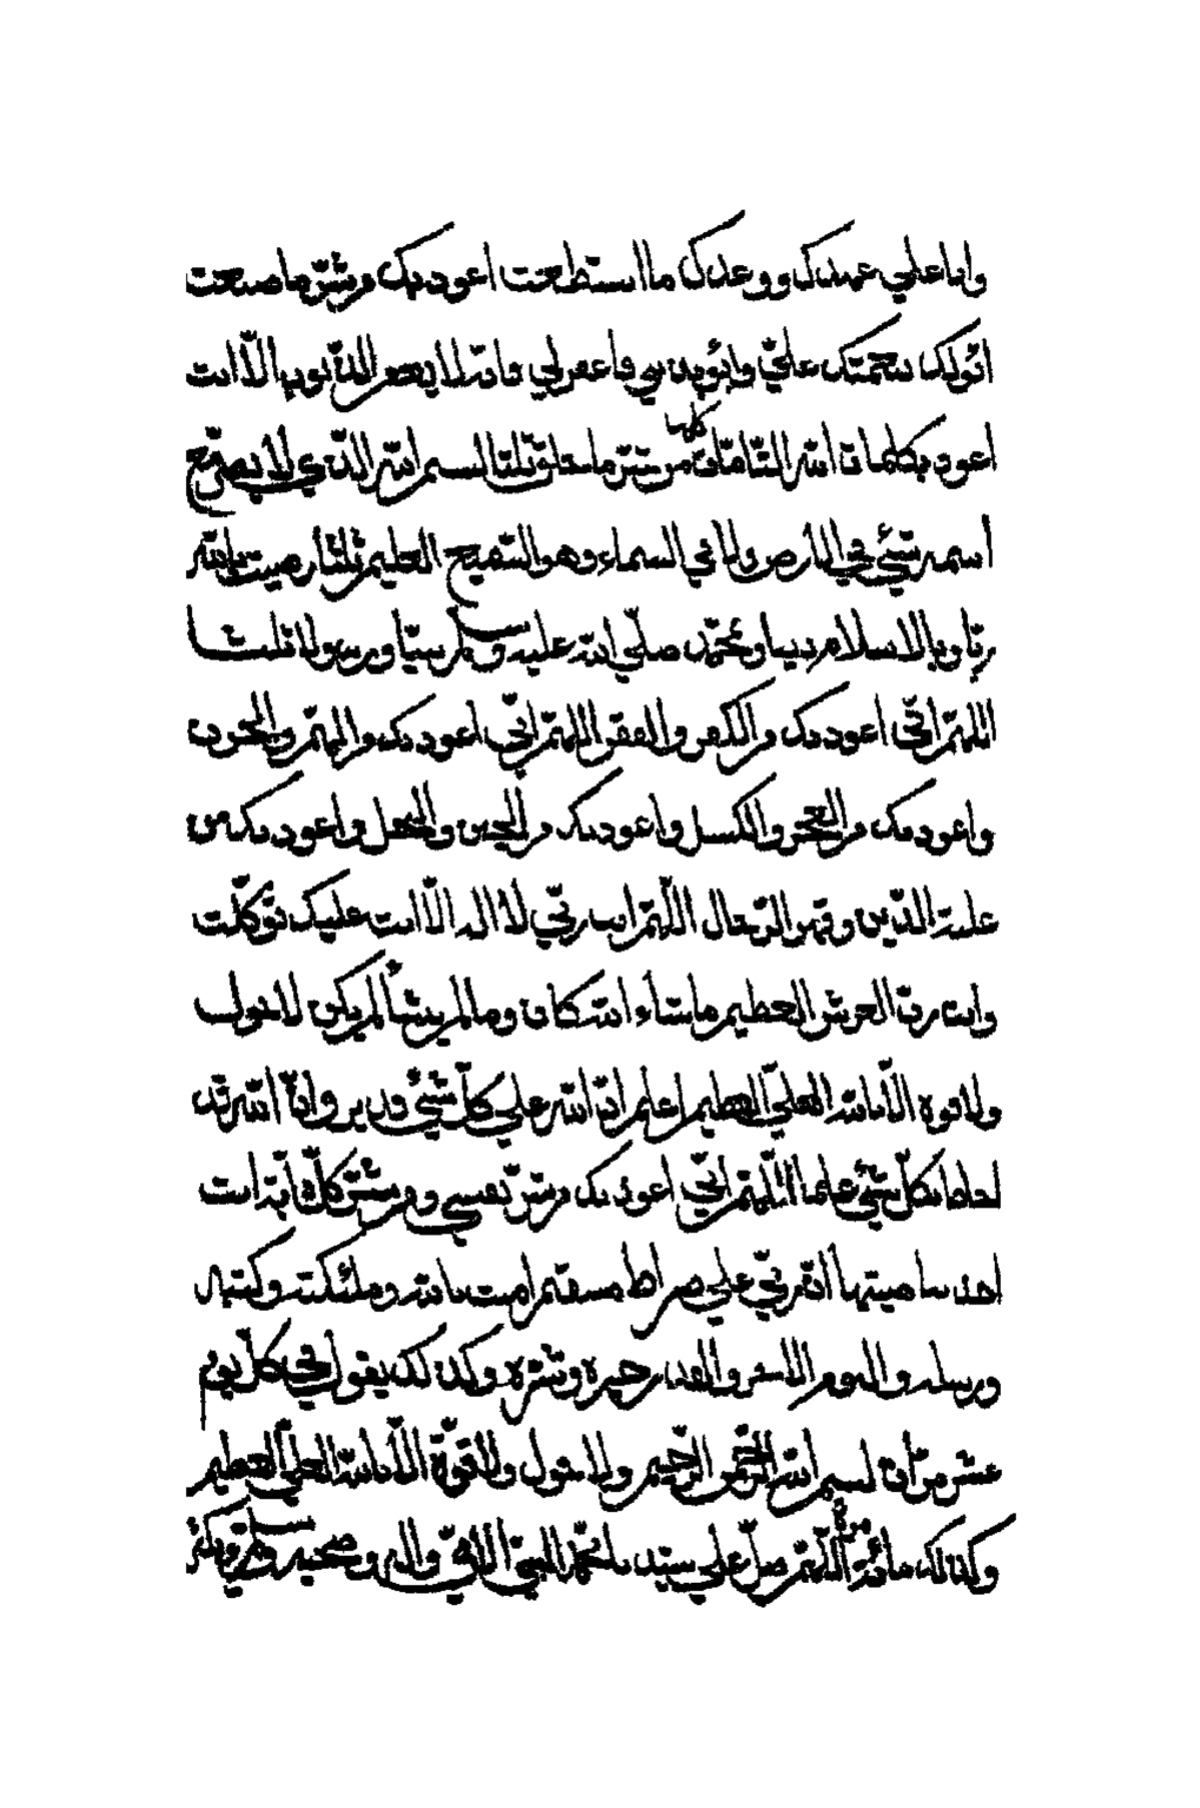 وانا علي عهدك ووعدك ما استطعت اعوذ بك من شرّ ما صنعت
ابوء لك بنعمتك عليّ وابوء بذنبي فاغفر لي فانّه لا يغفر الذّنوب الّا انت
اعوذ بكلمات الله التّامّات كلها من شرّ ما خلق ثلثا بسم الله الّذي لا يضرّ مع
اسمه شيئ في الارض ولا في السماء وهو السّميع العليم ثلثا رضيت بالله
ربّا وبالاسلام دينا وبمحمّد صلّي الله عليه وسلم نبيّا ورسولا ثلثا
اللهمّ انّي اعوذ بك من الكفر والفقر اللهمّ انّي اعوذ بك من الهمّ والحزن
واعوذ بك من العجز والكسل واعوذ بك من الجبن والبخل واعوذ بك من
غلبة الدّين وقهر الرّجال اللّهمّ انت ربّي لا اله الّا انت عليك توكّلت
وانت ربّ العرش العظيم ما شاء الله كان وما لم يشأ لم يكن لا حول
ولا قوة الّا بالله العليّ العظيم اعلم انّ الله علي كلّ شيئ قدير وانّ الله قد
احاط بكلّ شيئ علما اللّهمّ انّي اعوذ بك من شرّ نفسي ومن شرّ كلّ دابّة انت
اخذ بناصيتها انّ ربّي علي صراط مستقيم امنت بالله وملئكته وكتبه
ورسله واليوم الاخر والقدر خيره وشرّه وكذلك يقول في كلّ يوم
عشر مرّات بسم الله الرّحمن الرّحيم ولا حول ولا قوّة الّا بالله العليّ العظيم
وكذلك مائة مرة اللّهمّ صلّ علي سيّدنا محمّد النبيّ الامّيّ واله وصحبه وسلم